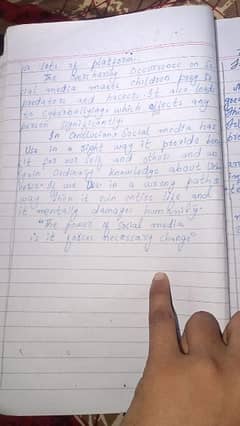 a lots of platform.
The increasing Occurrence on So
cial media makes children prey to
predators and hackers. It also leads
to cyberbullying which affects any
person significantly.
In Conclusion Social media has
Use in a right way it provide ben
it for our self and others and we
gain Ordinary knowledge about
we use in a wrong
way then it ruin entire life and
it mentally damages humanity.
"The power of Social media
is it forces necessary change"